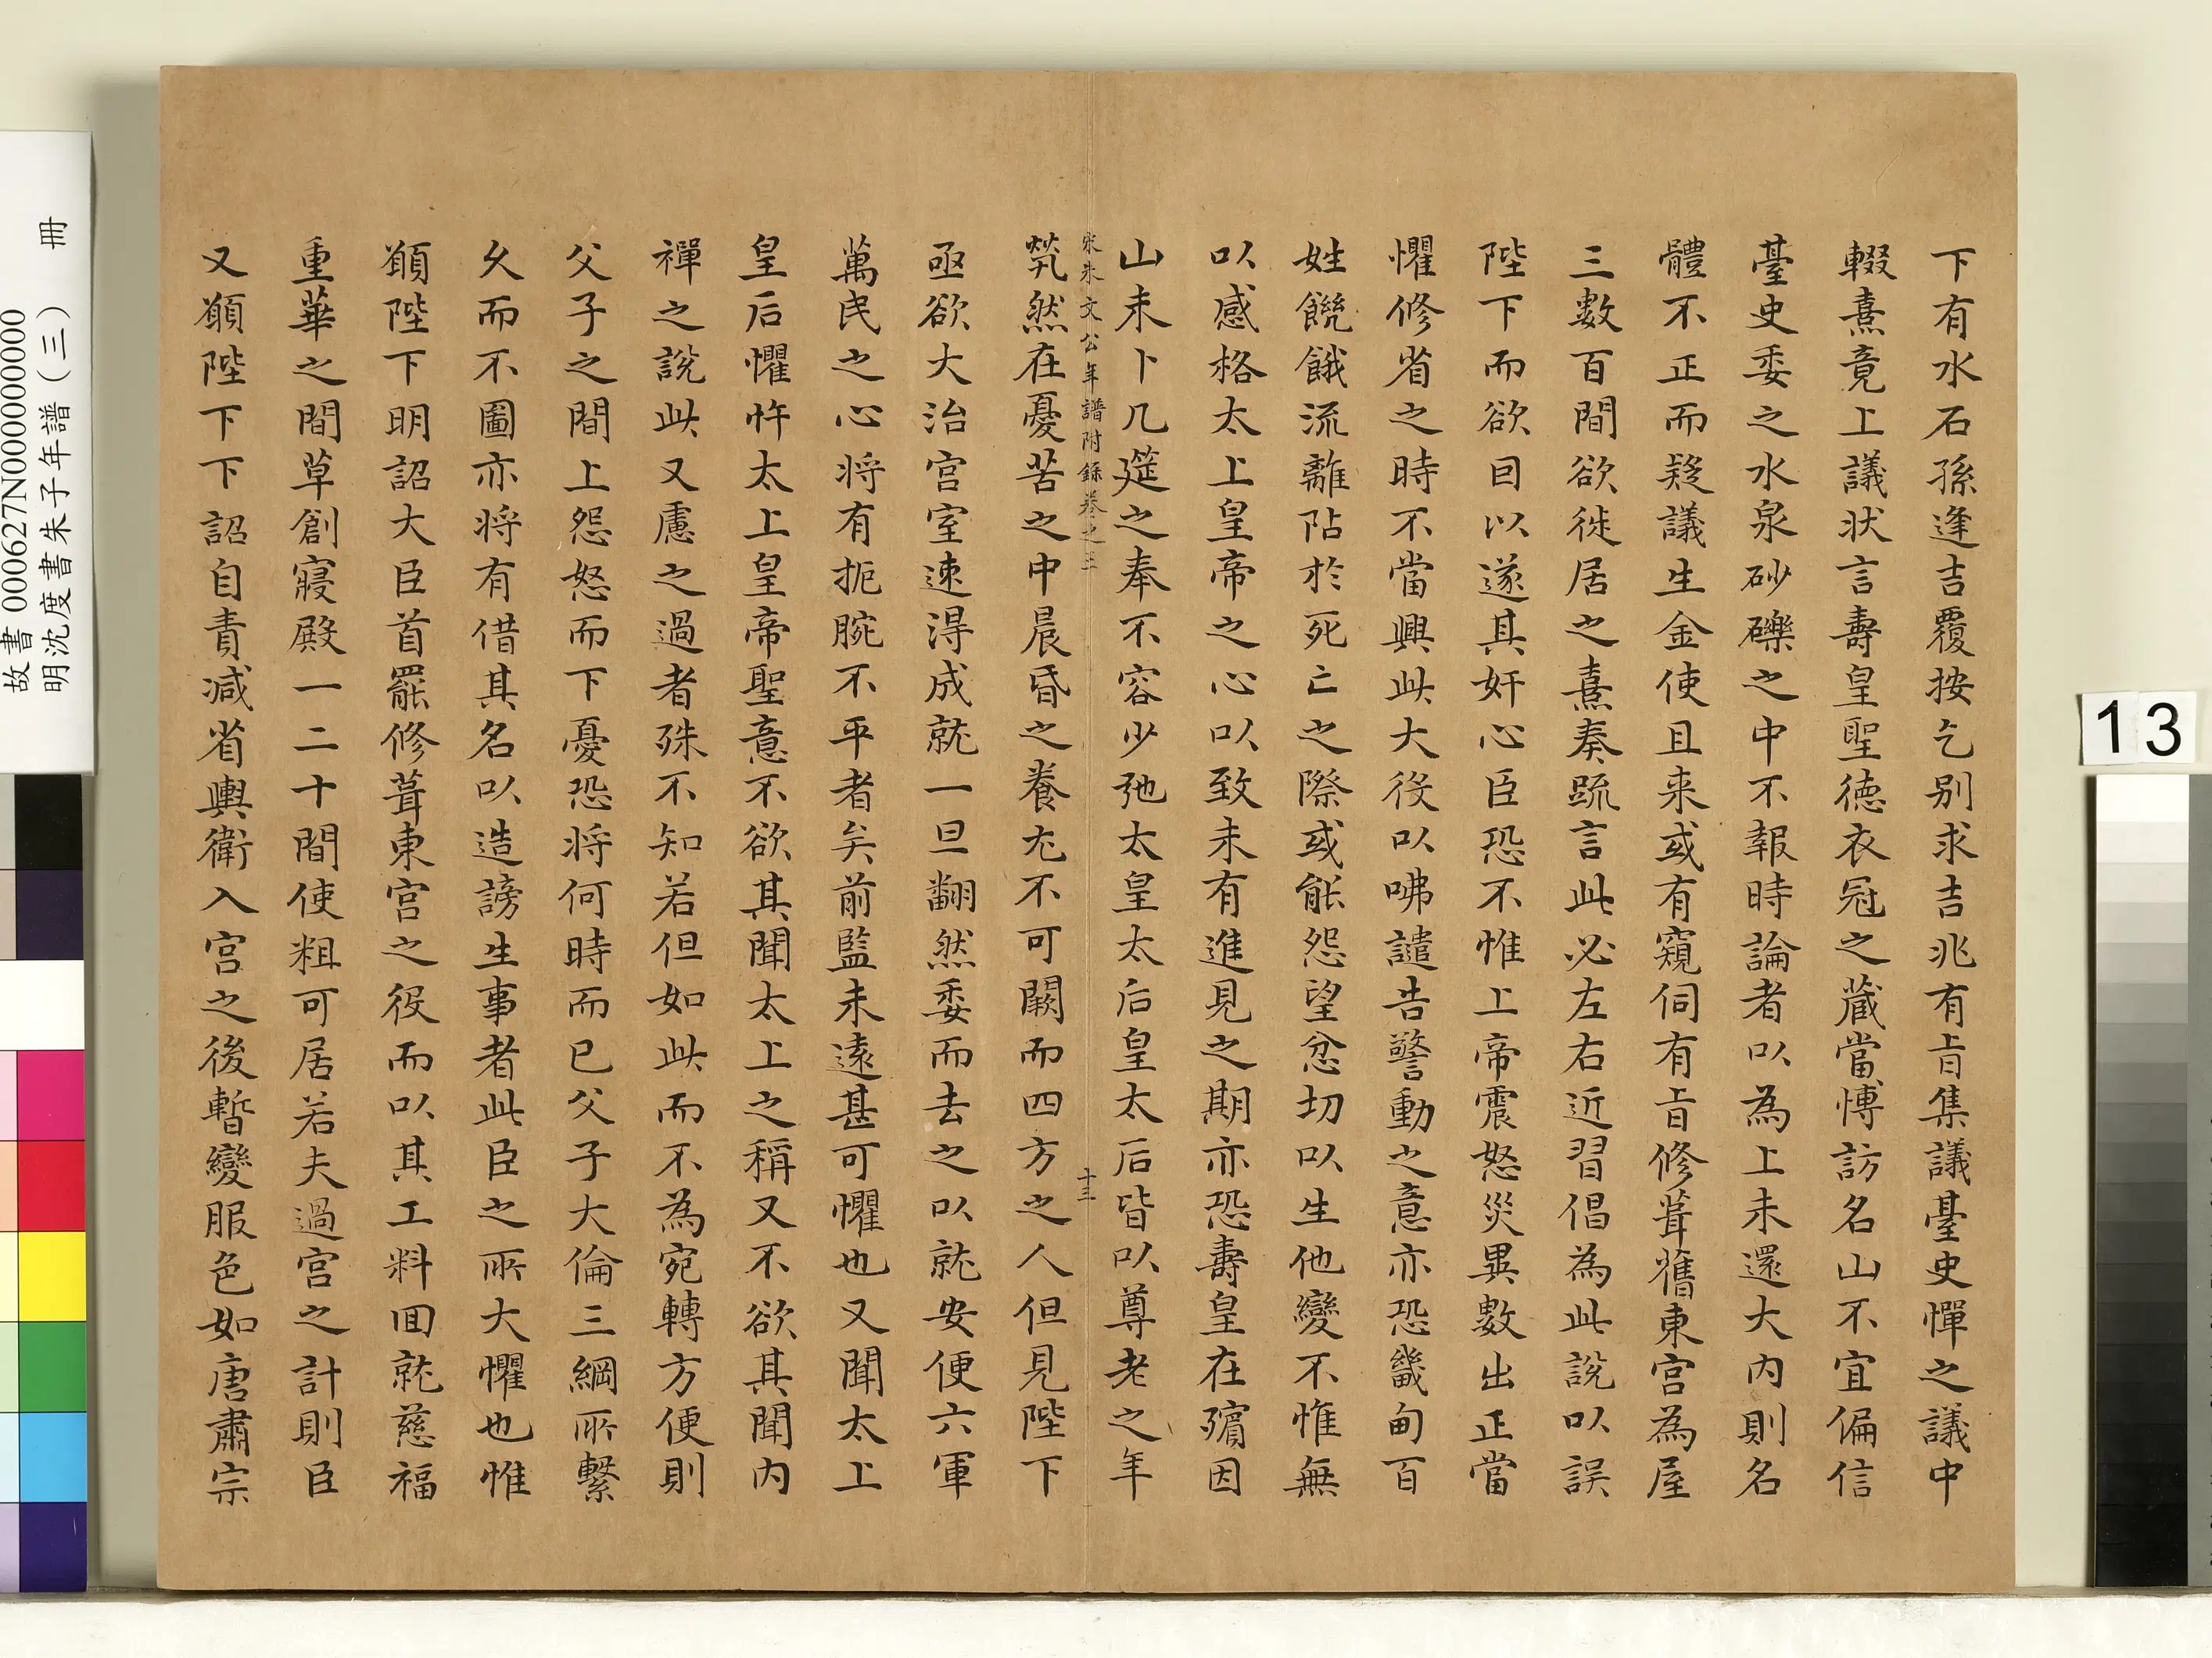 下有水石孫逢吉覆按乞別求吉兆有㫖集議臺史憚之議中
輟熹竟上議狀言壽皇聖德衣冠之藏當博訪名山不宜偏信
臺史委之水泉砂礫之中不報時論者以為上未還大內則名
體不正而疑議生金使且来或有窺伺有㫖修葺舊東宮為屋
三數百間欲徙居之熹奏䟽言此必左右近習倡為此說以誤
陛下而欲因以遂其奸心臣恐不惟上帝震怒災異數出正當
懼修省之時不當興此大役以咈譴告警動之意亦恐畿甸百
姓饑餓流離阽於死亡之際或能怨望忿切以生他變不惟無
以感格太上皇帝之心以致未有進見之期亦恐壽皇在殯因
山未卜几筵之奉不容少弛太皇太后皇太后皆以尊老之年
宋朱文公年譜附錄卷之三 十三
煢然在憂苦之中晨昏之養尤不可闕而四方之人但見陛下
亟欲大治宮室速得成就一旦翻然委而去之以就安便六軍
萬民之心将有扼腕不平者矣前監未遠甚可懼也又聞太上
皇后懼忤太上皇帝聖意不欲其聞太上之稱又不欲其聞內
禪之說此又慮之過者殊不知若但如此而不為宛轉方便則
父子之間上怨怒而下憂恐将何時而已父子大倫三綱所繫
久而不圖亦将有借其名以造謗生事者此臣之所大懼也惟
願陛下明詔大臣首罷修葺東宮之役而以其工料回就慈福
重華之間草創寢殿一二十間使粗可居若夫過宮之計則臣
又願陛下下詔自責減省輿衛入宮之後暫變服色如唐肅宗
故書 000627N000000000
明沈度書朱子年譜（三） 冊
13